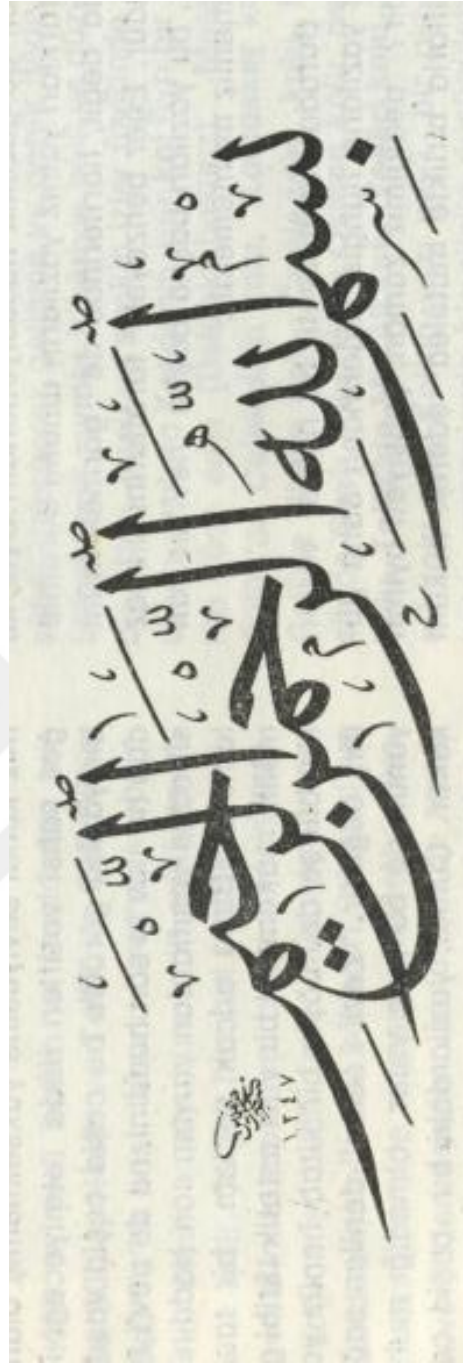 بِسْمِ اللهِ الرَّحْمٰنِ الرَّحِيمِ
١٣٤٧